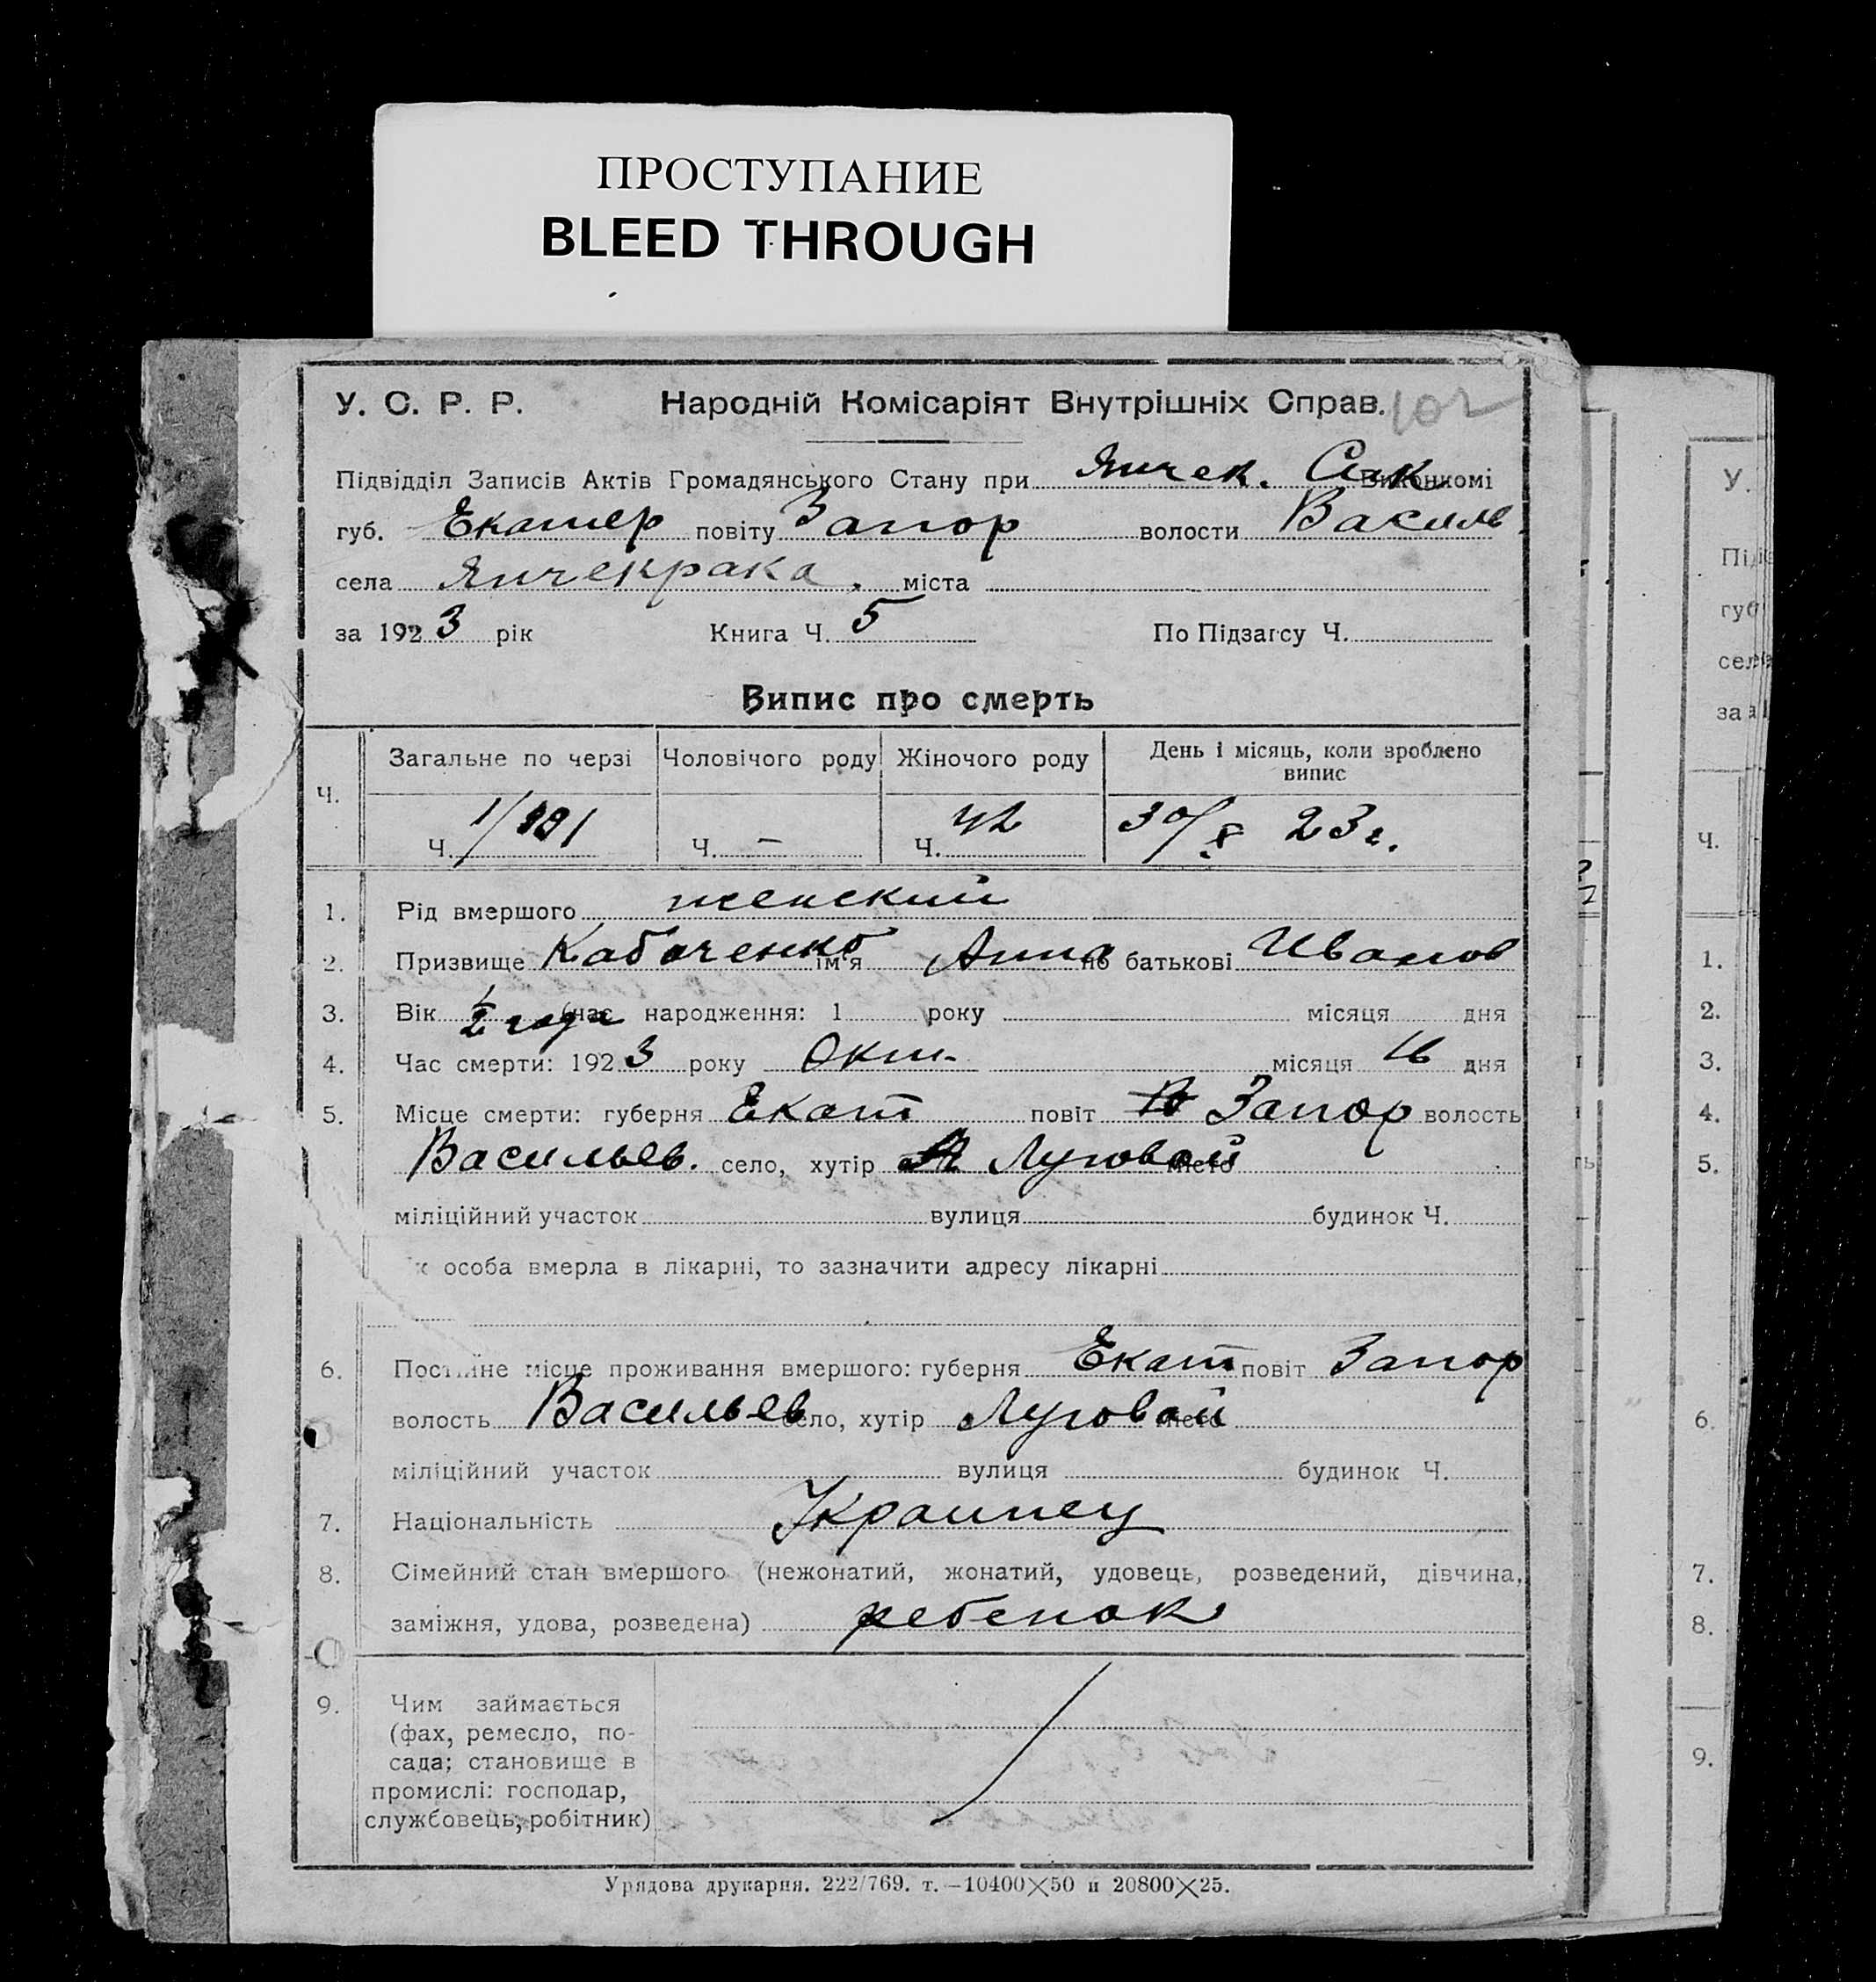 ПРОСТУПАНИЕ
BLEED THROUGH
У. С. Р. Р. Народній Комісаріят Внутрішніх Справ. 102
Підвідділ Записів Актів Громадянського Стану при Янчек. виконкомі
губ. Екатер повіту Запор волости Василь
села Янчекрака. міста
за 1923 рік Книга Ч. 5 По Підзагсу Ч.
Випис про смерть
Ч. Загальне по черзі Чоловічого роду Жіночого роду День і місяць, коли зроблено випис
Ч. Ч. — Ч. 42 30/X 23 г.
1. Рід вмершого женский
2. Призвище Кабаченко ім'я Анна по батькові Иванов
3. Вік ½ года (час народження: 1 року місяця дня
4. Час смерти: 1923 року Окт. місяця 16 дня
5. Місце смерти: губерня Екат повіт Запор волость
Васильев. село, хутір Луговой місто
міліційний участок вулиця будинок Ч.
к особа вмерла в лікарні, то зазначити адресу лікарні
6. Постійне місце проживання вмершого: губерня Екат повіт Запор
волость Васильев село, хутір Луговой місто
міліційний участок вулиця будинок Ч.
7. Національність Украинец
8. Сімейний стан вмершого (нежонатий, жонатий, удовець, розведений, дівчина,
заміжня, удова, розведена) ребенок
9. Чим займається
(фах, ремесло, по-
сада; становище в
промислі: господар,
службовець, робітник)
Урядова друкарня. 222/769. т. —10400×50 и 20800×25.
У.
губ
за
Ч.
1.
2.
3.
4.
5.
6.
7.
8.
9.